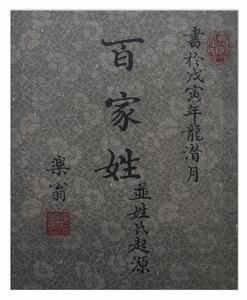 書於戊寅年龍潛月
百家姓
並姓氏起源
樂翁